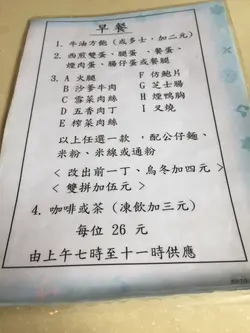 早餐
1. 牛油方飽 (或多士，加二元)
2. 西煎雙蛋、腿蛋、餐蛋、
煙肉蛋、腸仔蛋或餐腿
3. A 火腿 F 仿鮑片
B 沙爹牛肉 G 芝士腸
C 雪菜肉絲 H 煙鴨胸
D 五香肉丁 I 叉燒
E 榨菜肉絲
以上任選一款，配公仔麵、
米粉、米線或通粉
< 改出前一丁、烏冬加四元 >
< 雙拼加伍元 >
4. 咖啡或茶 (凍飲加三元)
每位 26 元
由上午七時至十一時供應